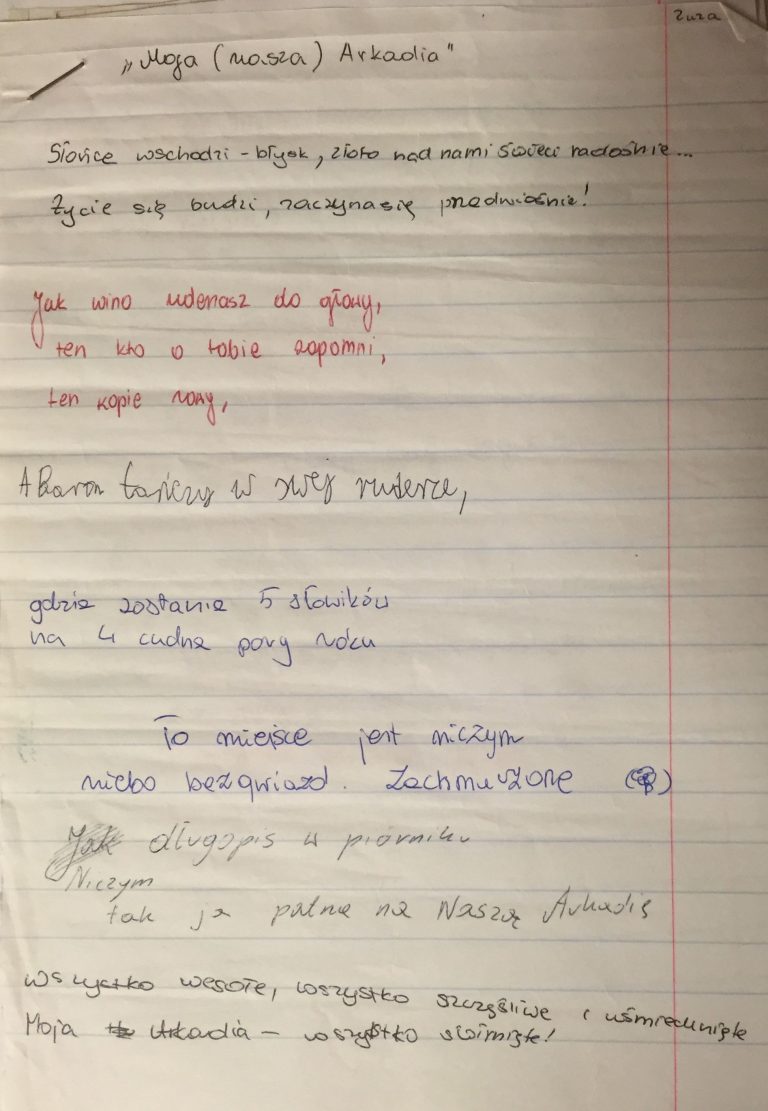 Zuza
"Moja (nasza) Arkadia"
Słońce wschodzi - błysk, złoto nad nami świeci radośnie...
Życie się budzi, zaczyna się przedwiośnie!
Jak wino uderzasz do głowy,
ten kto o tobie zapomni,
ten kopie rowy,
A Baron tańczy w swej ruderze,
gdzie zostanie 5 słowików
na 4 cudne pory roku
To miejsce jest niczym
niebo bez gwiazd. Zachmurzone
Jak długopis w piórniku
Niczym
tak ja patrzę na Naszą Arkadię
wszystko wesołe, wszystko szczęśliwe i uśmiechnięte
Moja Arkadia - wszystko